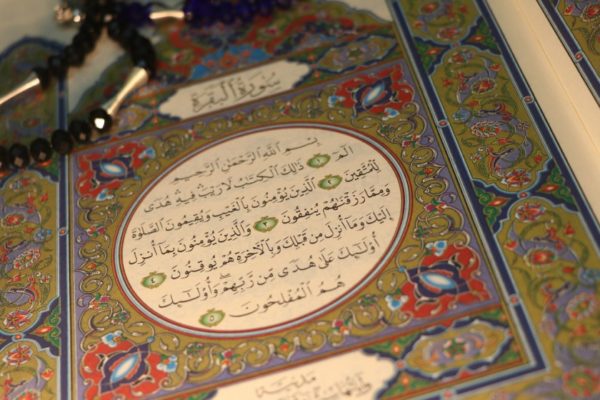 سُورَةُ الْبَقَرَةِ
بِسْمِ اللَّهِ الرَّحْمَٰنِ الرَّحِيمِ
الٓمٓ ١ ذَٰلِكَ الْكِتَابُ لَا رَيْبَ فِيهِ هُدًى
لِّلْمُتَّقِينَ ٢ الَّذِينَ يُؤْمِنُونَ بِالْغَيْبِ وَيُقِيمُونَ الصَّلَوٰةَ
وَمِمَّا رَزَقْنَاهُمْ يُنفِقُونَ ٣ وَالَّذِينَ يُؤْمِنُونَ بِمَا أُنزِلَ
إِلَيْكَ وَمَا أُنزِلَ مِن قَبْلِكَ وَبِالْآخِرَةِ هُمْ يُوقِنُونَ ٤
أُولَٰئِكَ عَلَىٰ هُدًى مِّن رَّبِّهِمْ وَأُولَٰئِكَ
هُمُ الْمُفْلِحُونَ ٥
مدنية